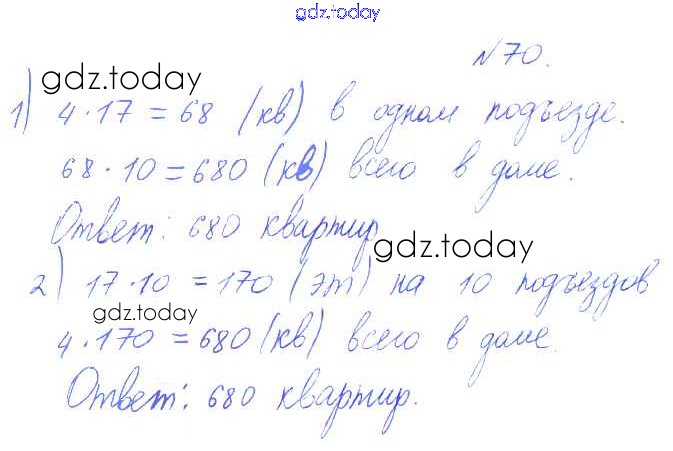 gdz.today
№70.
gdz.today
1) 4·17=68 (кв) в одном подъезде.
68·10=680 (кв) всего в доме.
Ответ: 680 квартир
gdz.today
2) 17·10=170 (эт) на 10 подъездов
gdz.today
4·170=680 (кв) всего в доме.
Ответ: 680 квартир.